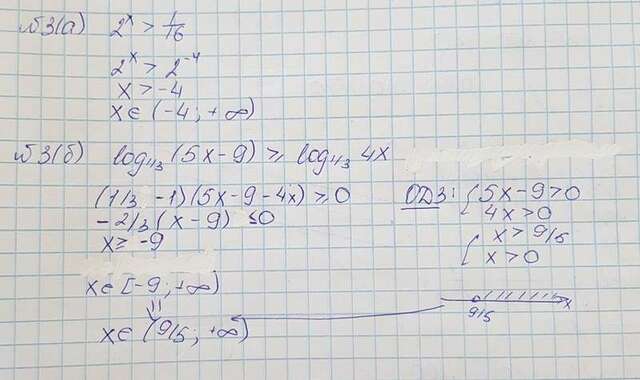 №3(а) 2^x > 1/16
2^x > 2^-4
x > -4
x ∈ (-4; +∞)
№3(б) log_1/3 (5x-9) ≥ log_1/3 4x
(1/3 -1)(5x-9-4x) ≥ 0
-2/3 (x-9) ≤ 0
x ≥ -9
x ∈ [-9; +∞)
⇓
x ∈ (9/5; +∞)
ОДЗ: { 5x-9>0
4x>0
{ x > 9/5
x > 0
9/5 x